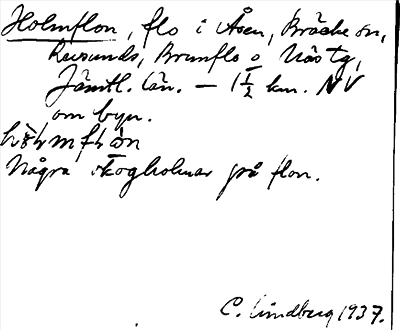 Holmflon, flo i Åsen, Bräcke sn,
Revsunds, Brunflo o Näs tg,
Jämtl. län. — 1 1/2 km. NV
om byn.
Några skogholmar på flon.
C. Lindberg 1937.